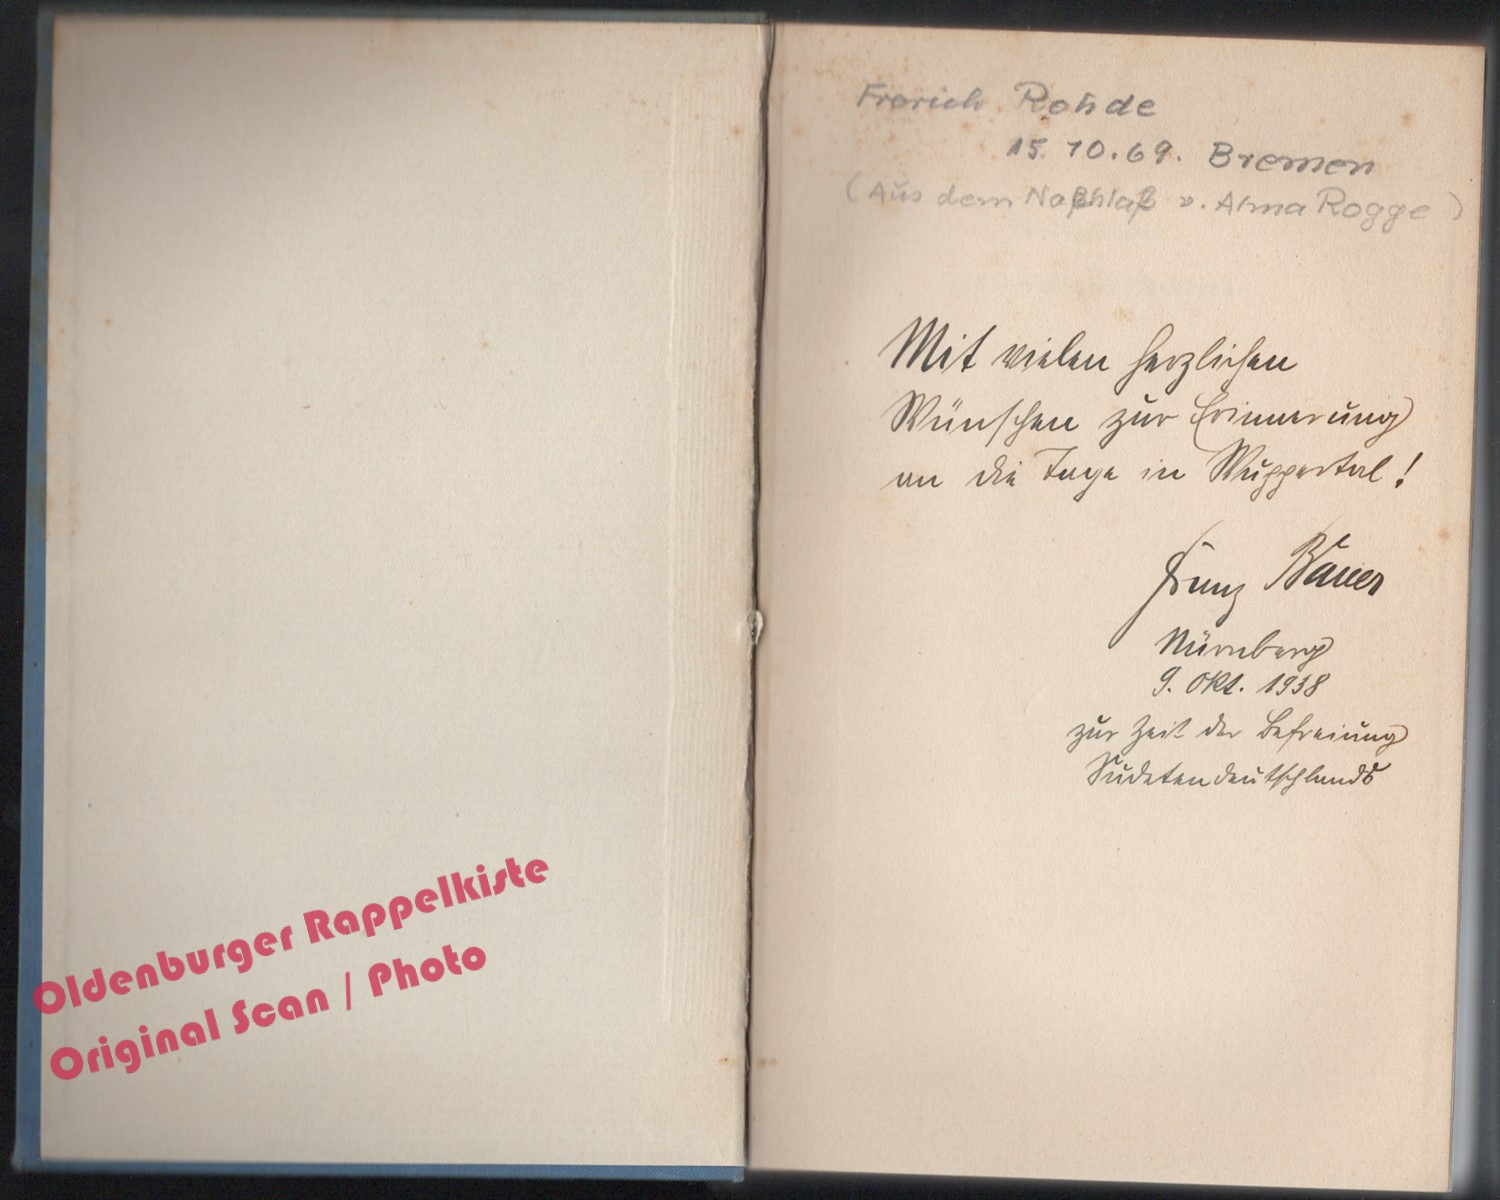 Frerich Rohde
15.10.69. Bremen
(Aus dem Nachlaß v. Alma Rogge)
Mit vielen herzlichen
Wünschen zur Erinnerung
an die Tage in Wuppertal!
Franz Bauer
Nürnberg
9. Okt. 1938
zur Zeit der Befreiung
Sudetendeutschlands
Oldenburger Rappelkiste
Original Scan / Photo